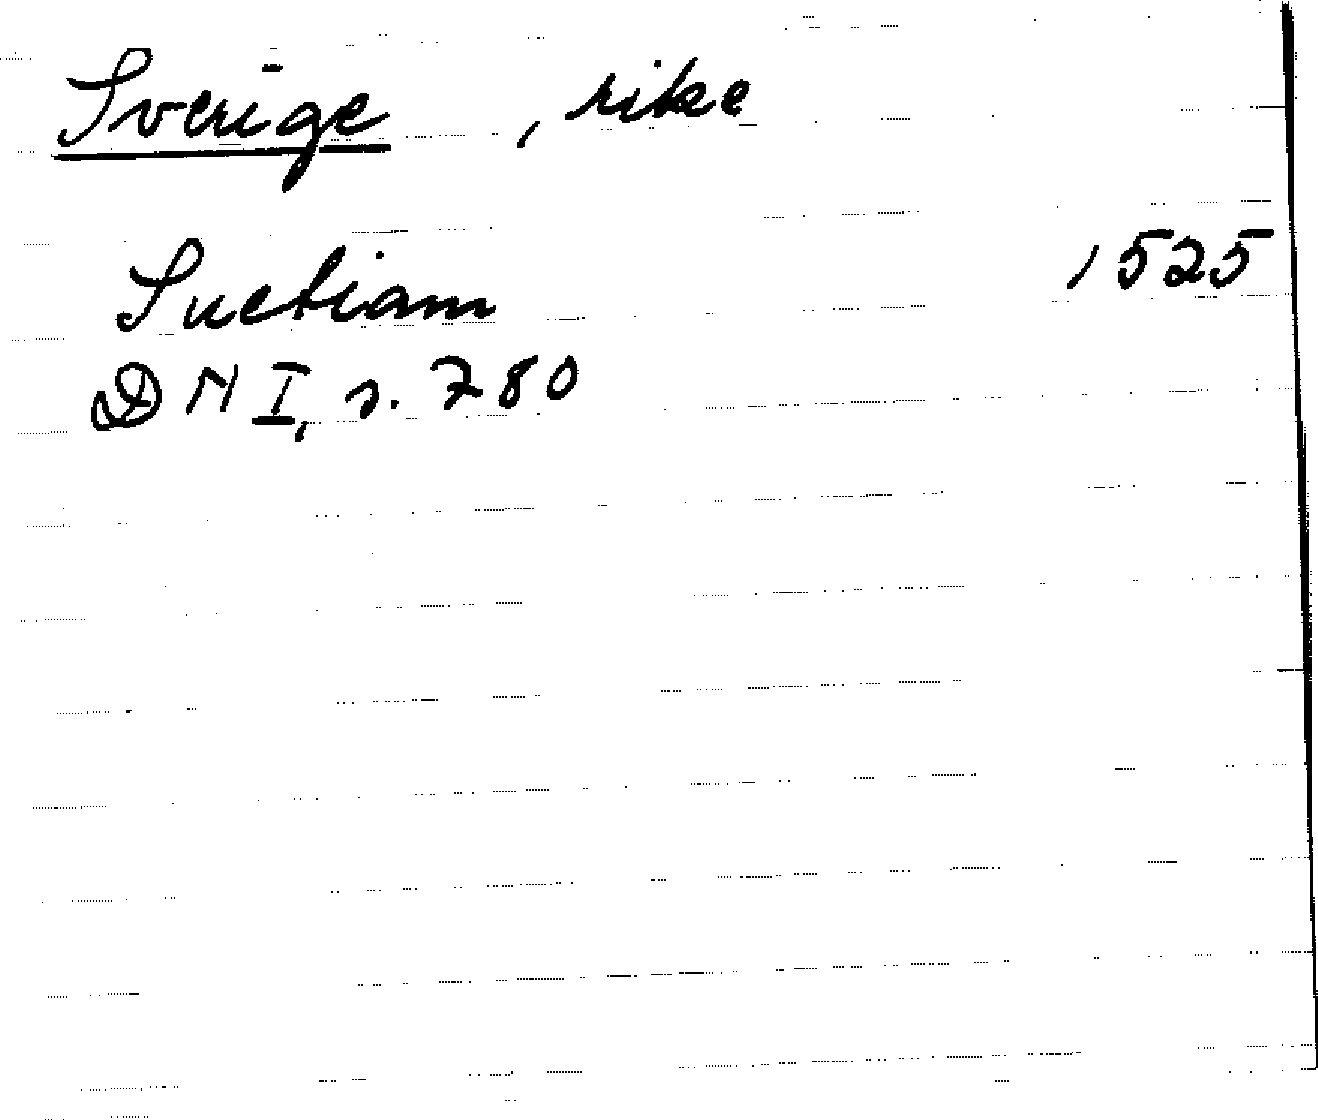 Sverige, rike
Suetiam 1525
DN I, s. 780